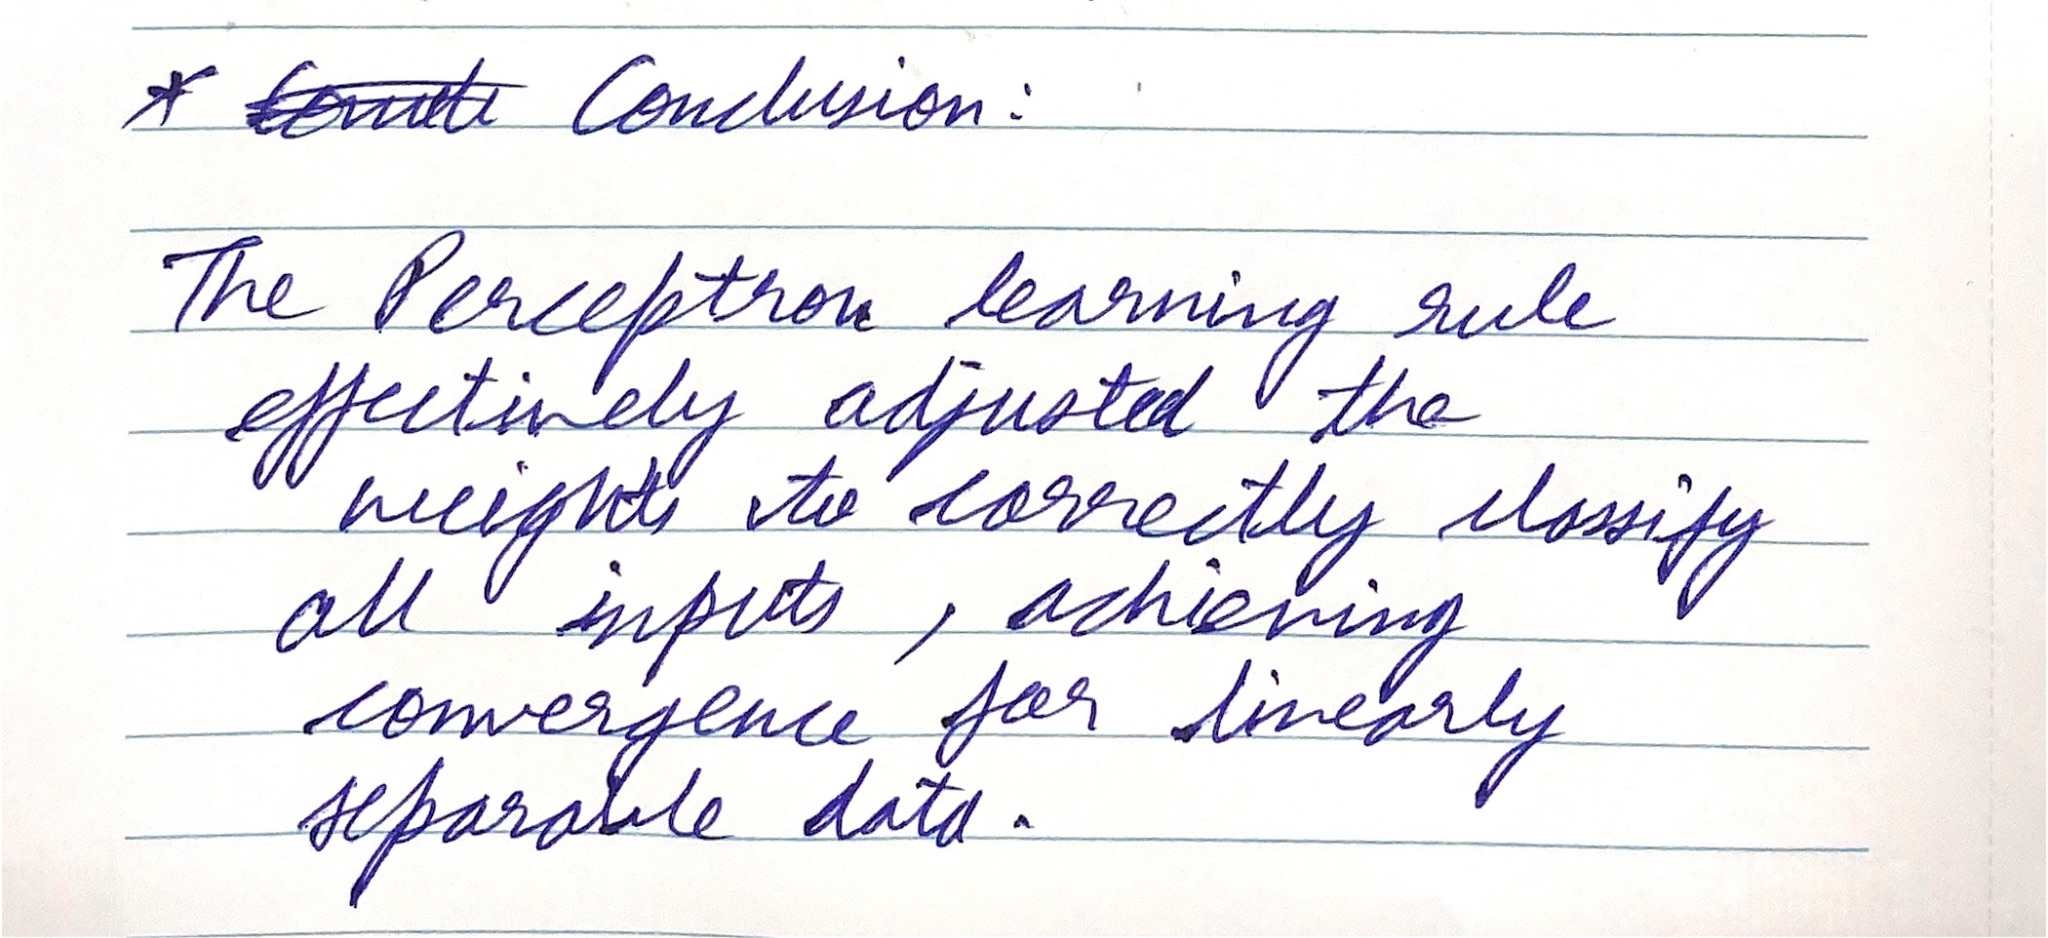 * Conclusion:
The Perceptron learning rule
effectively adjusted the
weights to correctly classify
all inputs, achieving
convergence for linearly
separable data.